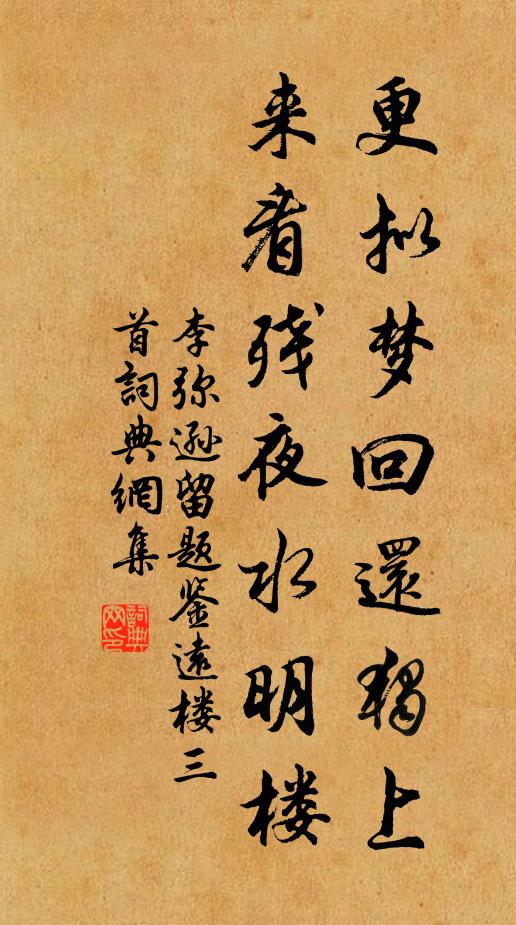 更拟梦回還獨上
来看残夜水明楼
李弥遜留题鉴遠楼三
首詞典網集
詞典
网印